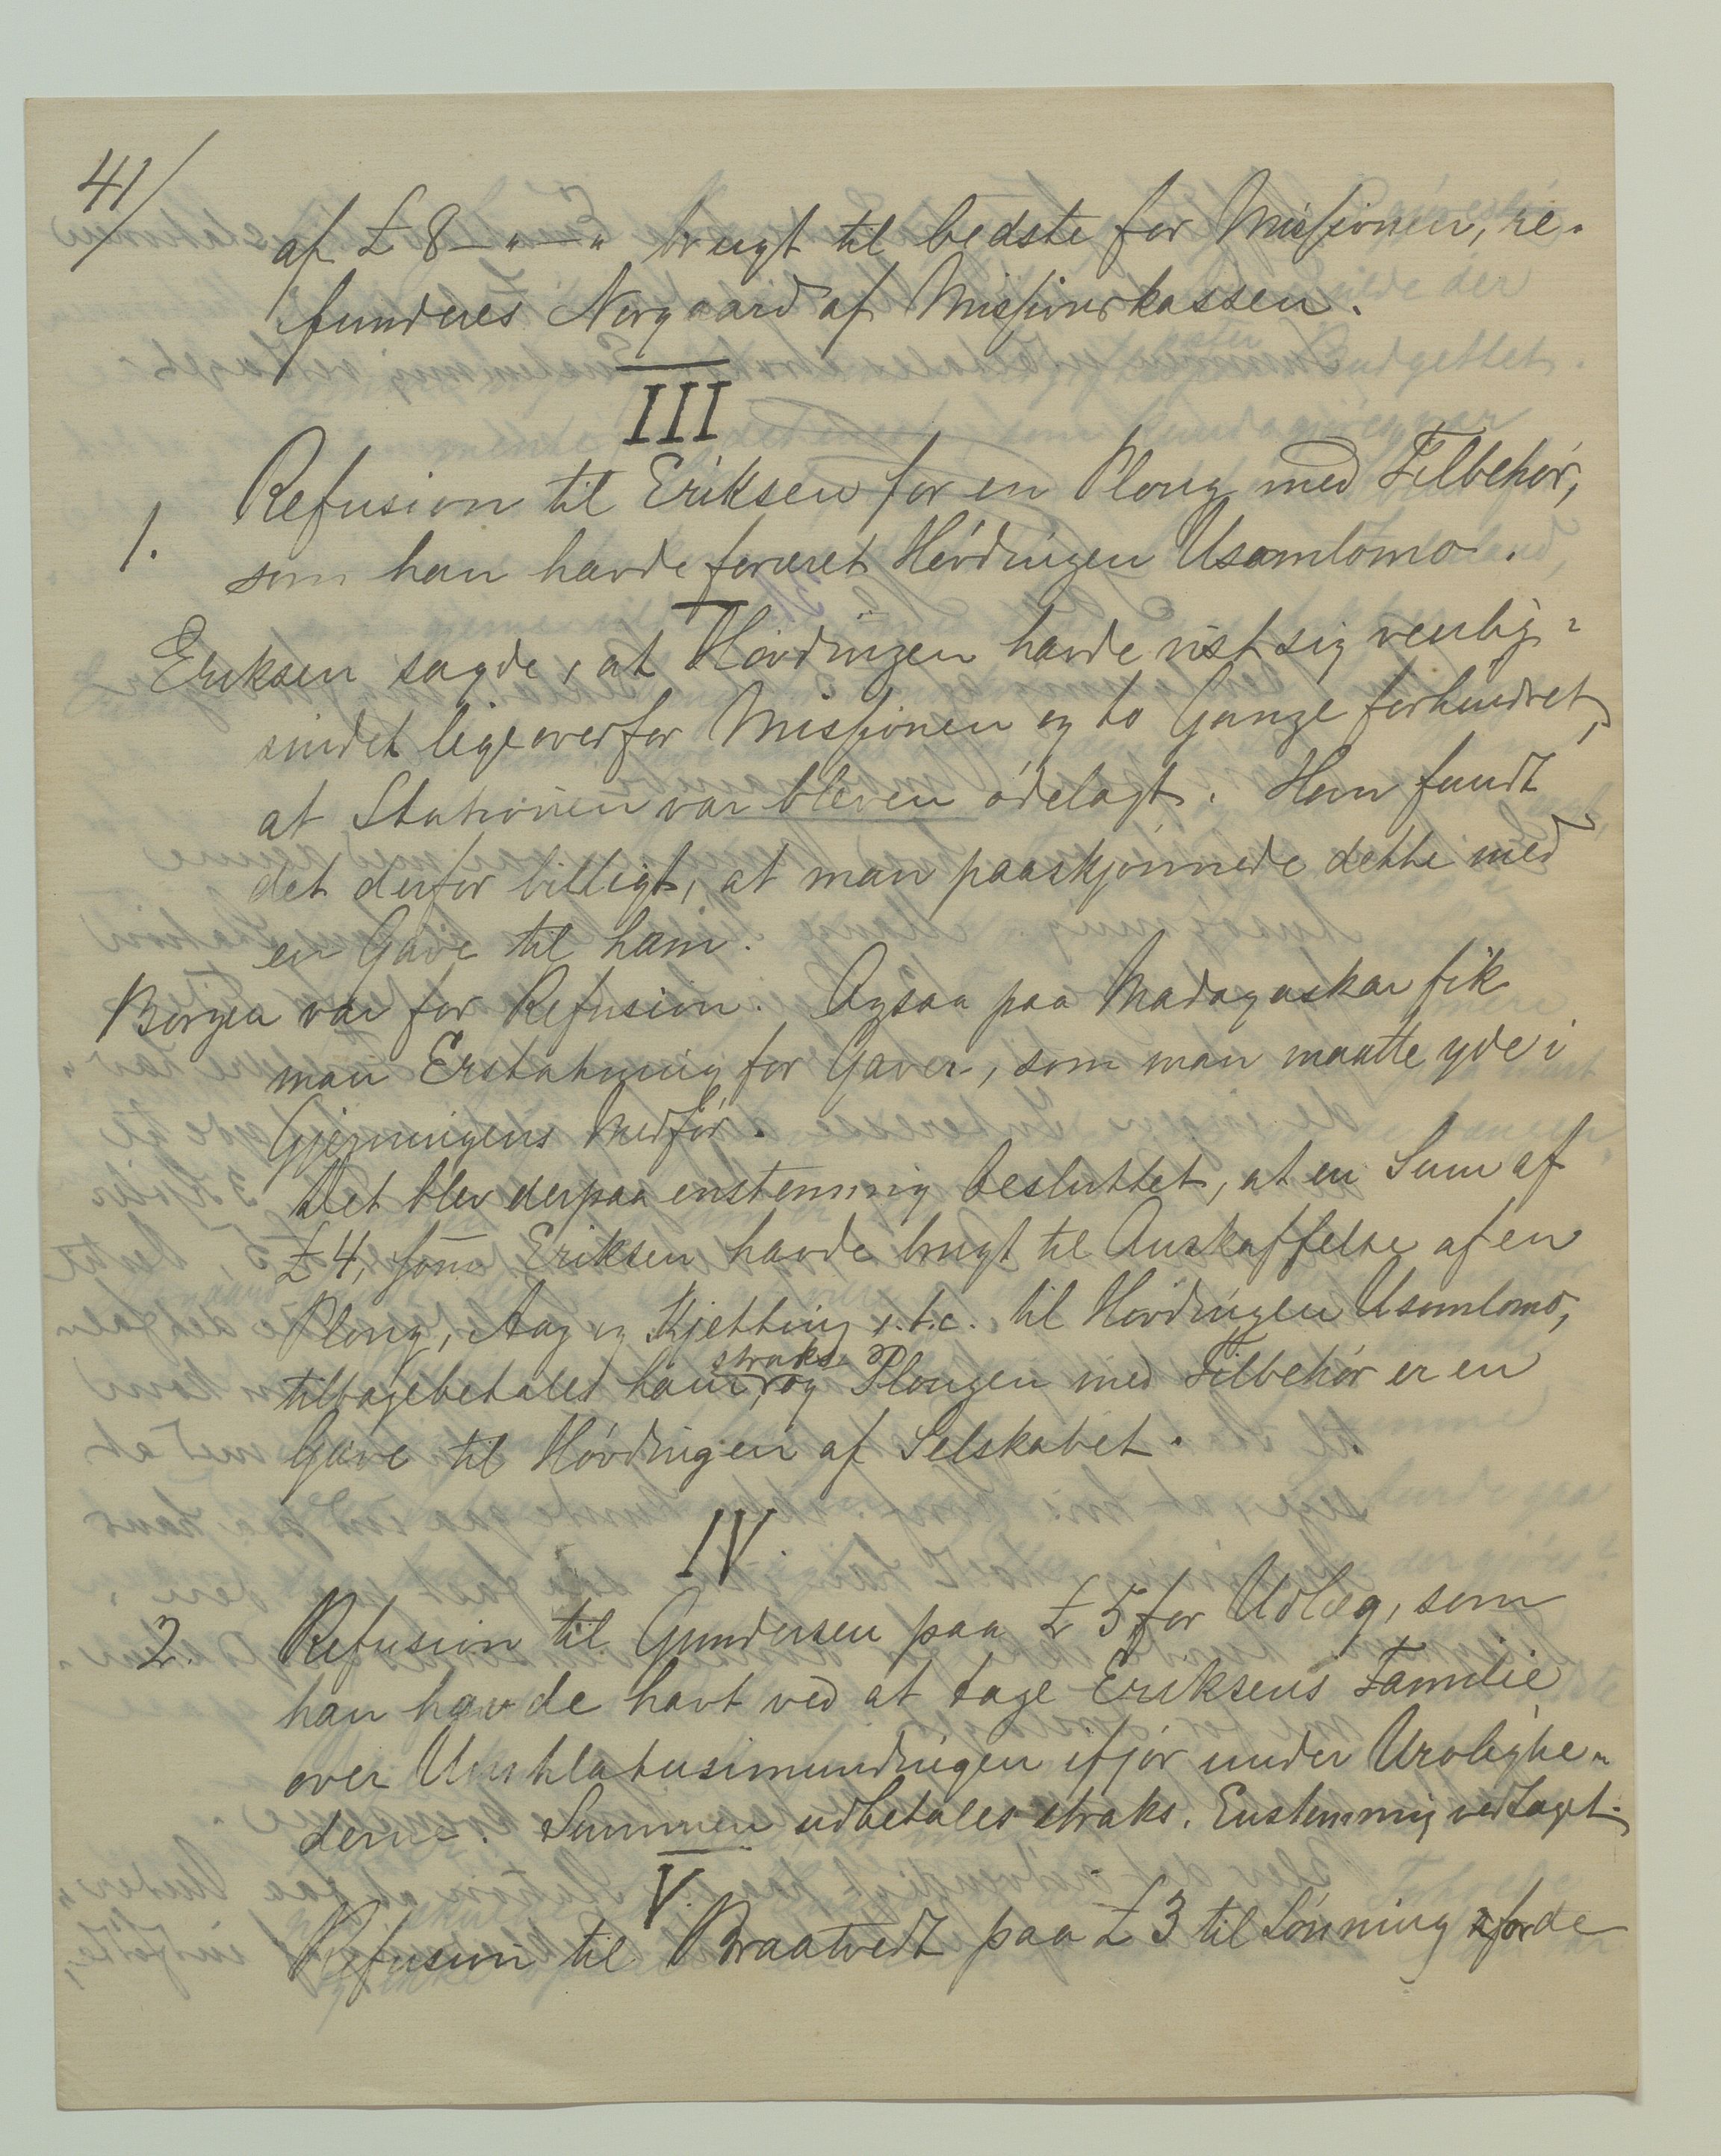 41/
af £ 8 – " – " brugt til bedste for Missionen, re-
funderes Norgaard af Missionskassen.
III
1. Refusion til Eriksen for en Ploug med Tilbehör,
som han havde foræret Hövdingen Usomlomo.
Eriksen sagde, at Hövdingen havde vist sig venlig-
sindet ligeoverfor Missionen og to Gange forhindret,
at Stationen var bleven ödelagt. Han fandt
det derfor billigt, at man paaskjönnede dette med
en Gave til ham.
Borgen var for Refusion. Ogsaa paa Madagaskar fik
man Erstatning for Gaver, som man maatte yde i
Gjerningens Medför.
Det blev derpaa enstemmig besluttet, at en Sum af
£ 4, som Eriksen havde brugt til Anskaffelse af en
Ploug, Aag og Kjetting e.t.c. til Hövdingen Usomlomo,
tilbagebetales ham straks, og Plougen med Tilbehör er en
Gave til Hövdingen af Selskabet.
IV.
2. Refusion til Gundersen paa £ 5 for Udlæg, som
han havde havt ved at tage Eriksens Familie
over Umhlatusimundingen ifjör under Urolighe-
derne. Summen udbetales straks. Enstemmig vedtaget.
V.
Refusion til Braatvedt paa £ 3 til Lönning for de